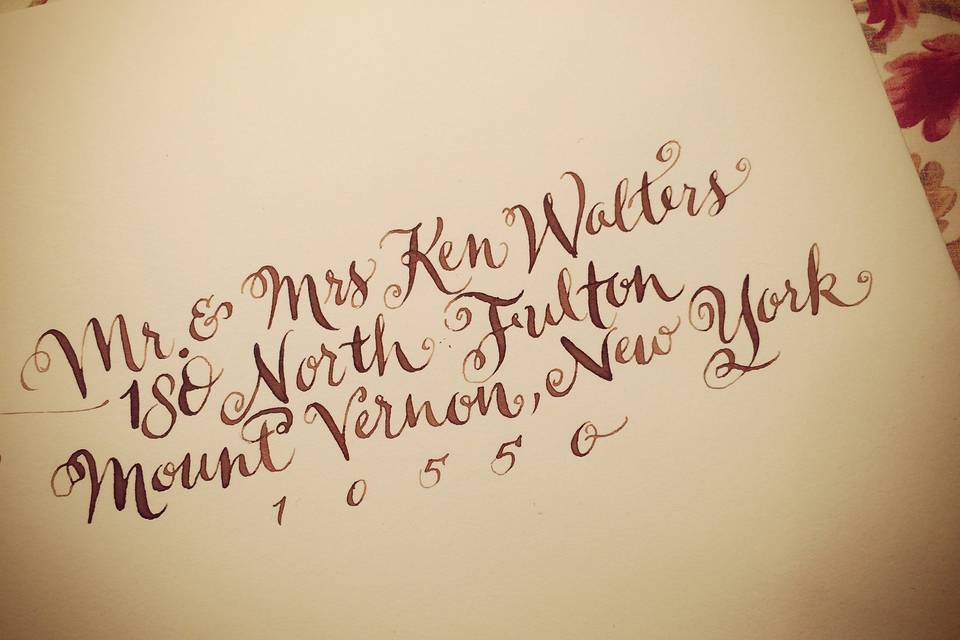 Mr. & Mrs Ken Walters
180 North Fulton
Mount Vernon, New York
10550